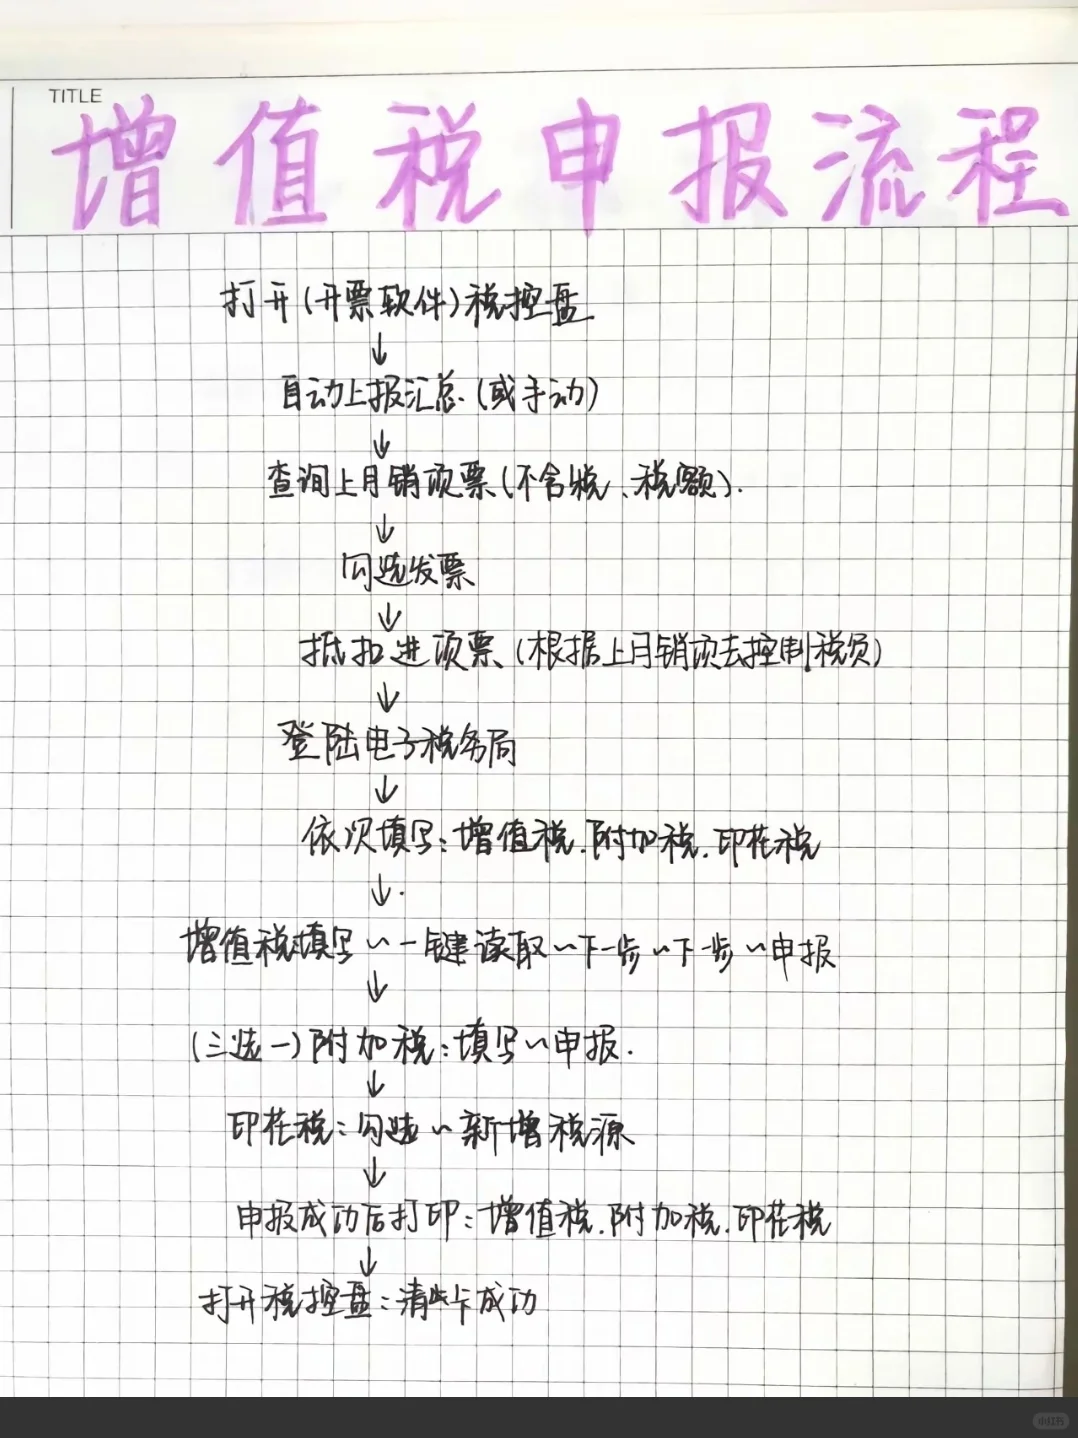 TITLE
增值税申报流程
打开(开票软件)税控盘
↓
自动上报汇总(或手动)
↓
查询上月销项票(不含税、税额).
↓
勾选发票
↓
抵扣进项票(根据上月销项去控制税负)
↓
登陆电子税务局
↓
依次填写:增值税.附加税.印花税
↓.
增值税填写~一键读取~下一步~下一步~申报
↓
(三选一)附加税:填写~申报.
↓
印花税:勾选~新增税源
↓
申报成功后打印:增值税.附加税.印花税
↓
打开税控盘:清卡成功
小红书